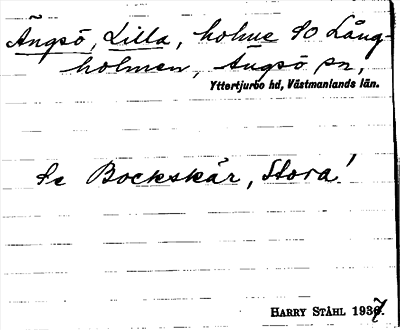 Ängsö, Lilla, holme SO Lång-
holmen, Ängsö sn,
Yttertjurbo hd, Västmanlands län.
Se Bockskär, Stora!
HARRY STÅHL 1937.